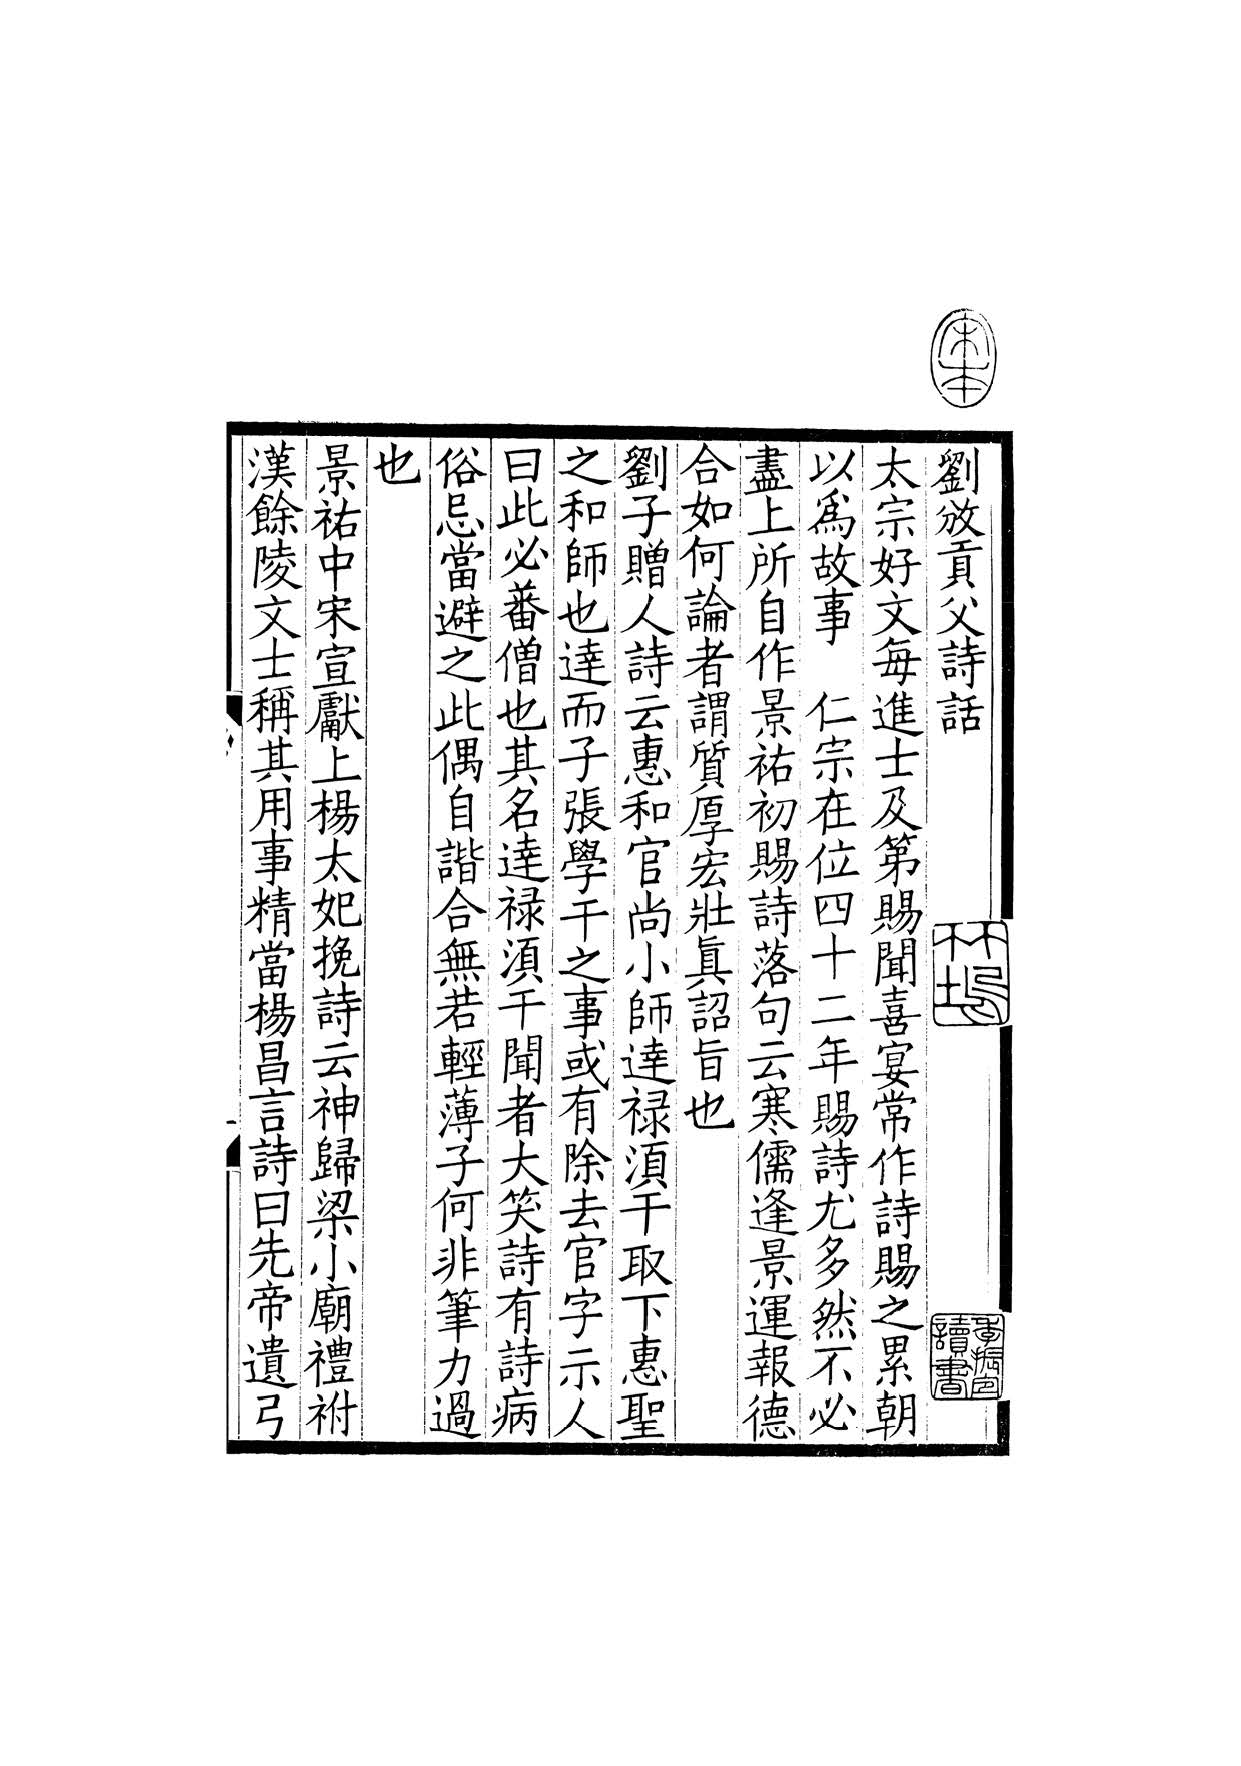 宋本
劉攽貢父詩話
竹塢
季振宜讀書
太宗好文每進士及第賜聞喜宴常作詩賜之累朝
以爲故事　仁宗在位四十二年賜詩尤多然不必
盡上所自作景祐初賜詩落句云寒儒逢景運報德
合如何論者謂質厚宏壯真詔旨也
劉子贈人詩云惠和官尚小師達禄須干取下惠聖
之和師也達而子張學干之事或有除去官字示人
曰此必番僧也其名達禄須干聞者大笑詩有詩病
俗忌當避之此偶自諧合無若輕薄子何非筆力過
也
景祐中宋宣獻上楊太妃挽詩云神歸梁小廟禮祔
漢餘陵文士稱其用事精當楊昌言詩曰先帝遺弓